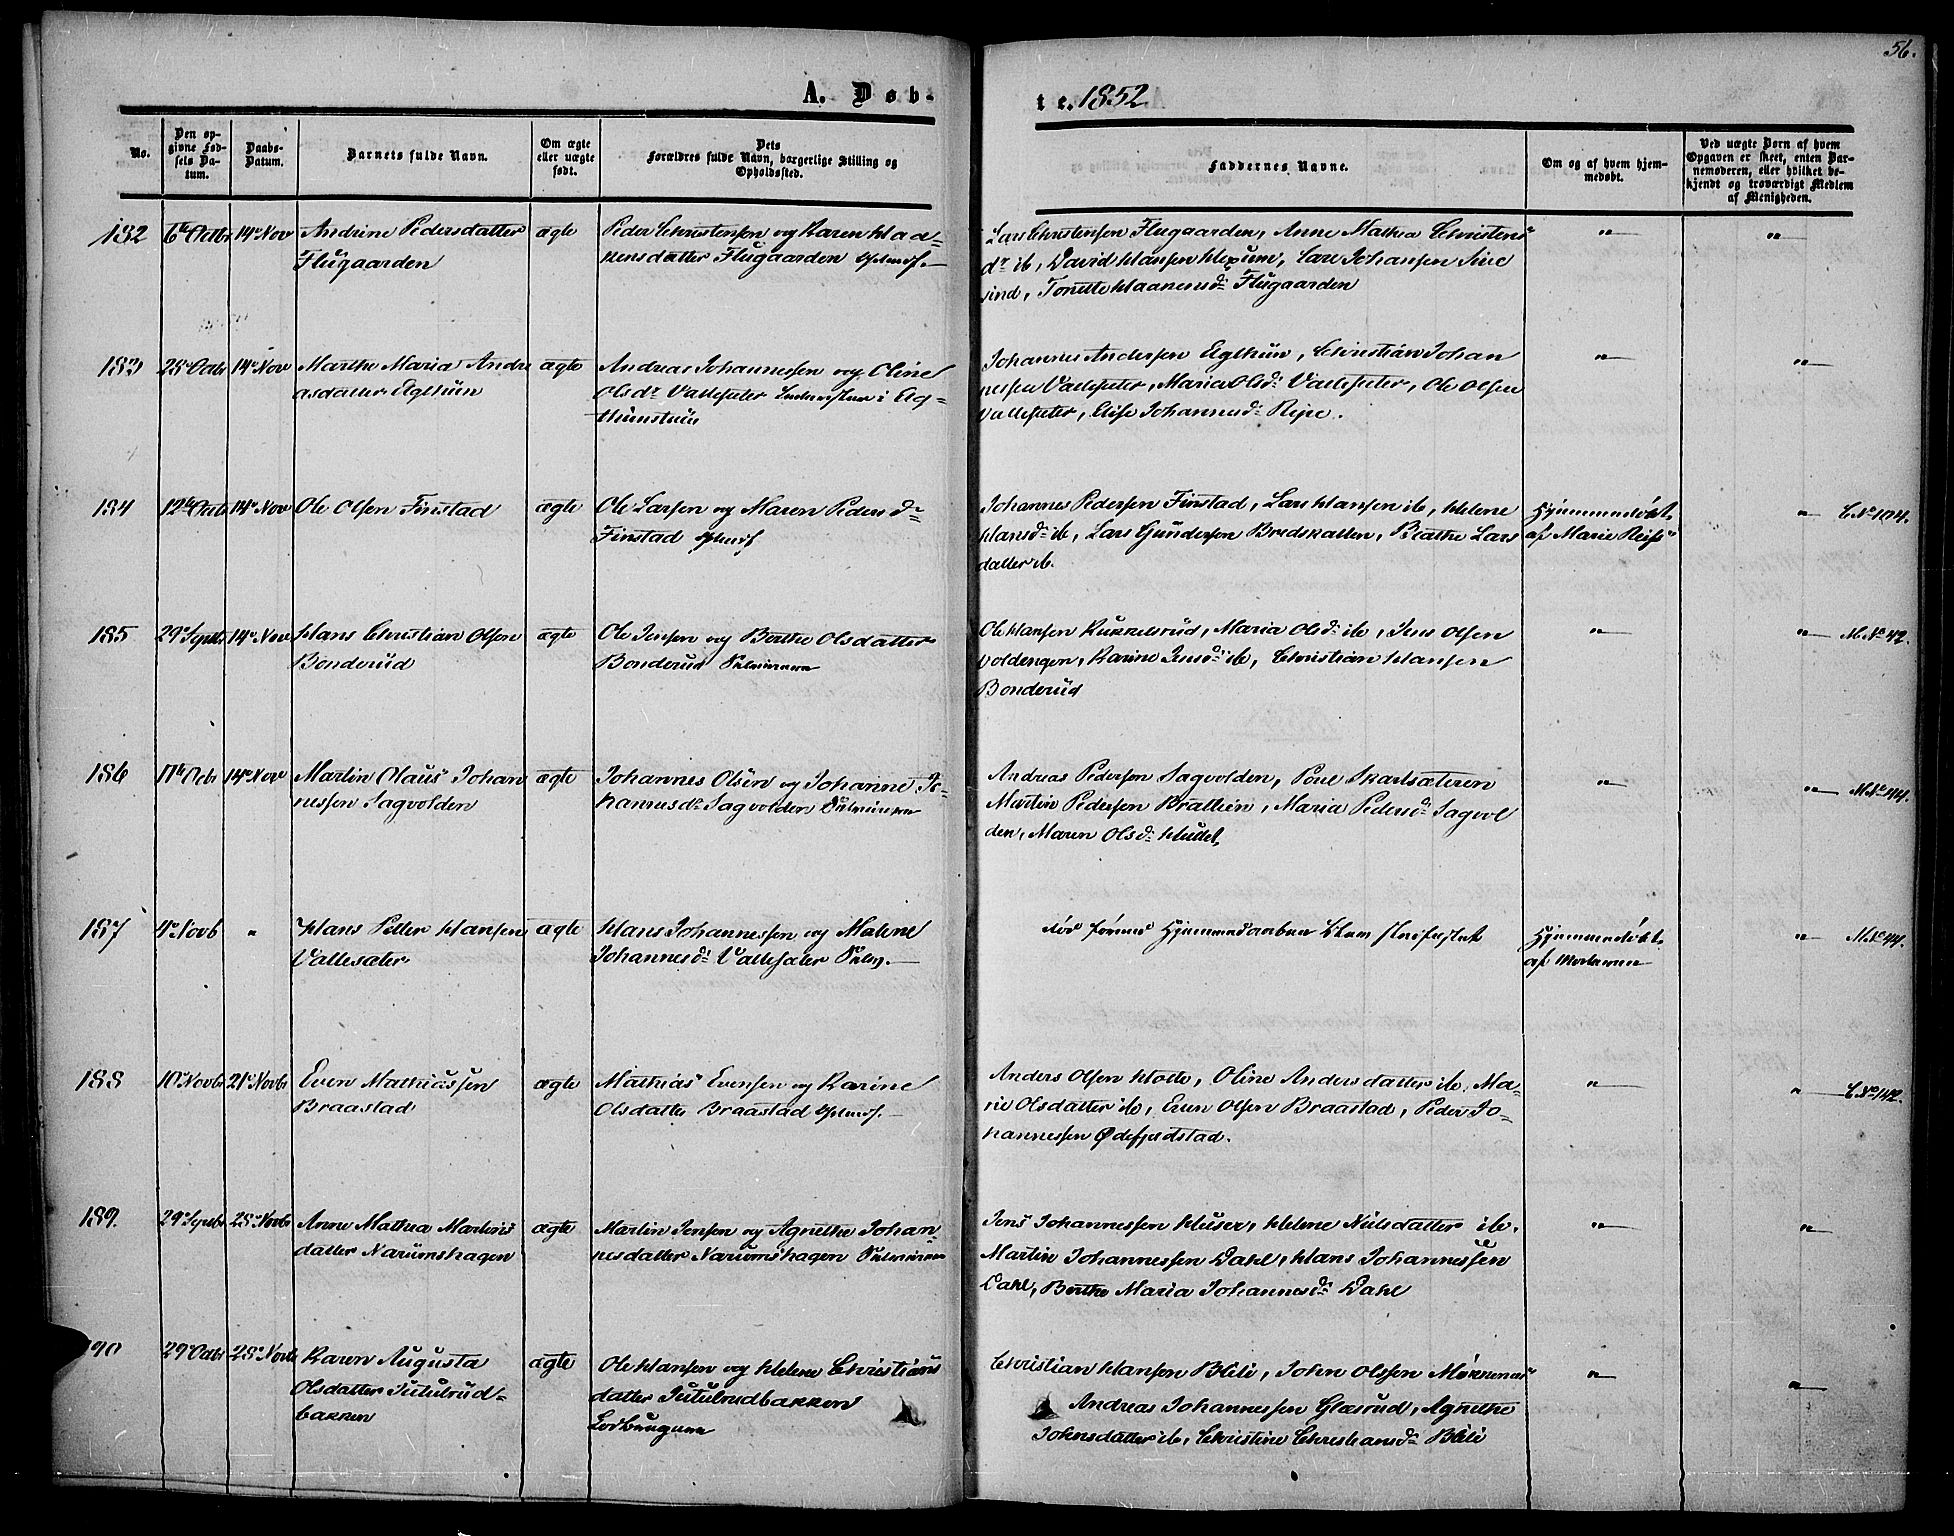 56.
A. Døb-
te. 1852
No.
Den op-
givne Fød-
sels Da-
tum.
Daabs-
Datum.
Barnets fulde Navn.
Om ægte
eller uægte
født.
Dets
Forældres fulde Navn, borgerlige Stilling og
Opholdssted.
Faddernes Navne.
Om og af hvem hjem-
medøbt.
Ved uægte Børn af hvem
Opgaven er skeet, enten Bar-
nemoderen, eller hvilket be-
kjendt og troværdigt Medlem
af Menigheden.
182 6te Octbr 14de Nov Andrine Pedersdatter ægte Peder Christensen og Karen Haa-
Flugaarden
kensdatter Flugaarden
Lars Christensen Flugaarden, Anne Mathea Christens
dr ib, David Hansen, Lars Johansen
Tonette Haakensd: Flugaarden
183 14de Nov Marthe Maria Andre ægte Andreas Johannessen og Oline
asdatter Eglhun
Olsdr Vallesæter i Eg-
Johannes Andersen Eglhun, Christian Johan
nessen Vallesæter, Maria Olsd: Vallesæter, Ole Olsen
Vallesæter, Elise Johannesd:
184 12te Octb 14de Nov Ole Olsen Finstad ægte Ole Larsen og Maren Peders dr
Finstad
Johannes Pedersen Finstad, Lars Hansen ib, Helene
Hansd: ib, Lars Gundersen Bredskallen, Beathe Lars
datter ib.
Hjemmedøbt
af Marie
C No 104.
185 29de Septbr 14de Nov Hans Christian Olsen ægte Ole Jensen og Berthe Olsdatter
Bonderud
Bonderud
Ole Hansen Kukkelsrud, Maria Olsd: ib, Jens Olsen
Voldengen, Karine Jensd: ib, Christian Hansen
Bonderud
M No 42.
186 14de Nov Martin Olaus Johan ægte Johannes Olsen og Johanne Jo-
nessen Sagvolden
hannesdr Sagvolden
Andreas Pedersen Sagvolden, Poul Skartsæteren
Martin Pedersen Brathien, Maria Pedersd: Sagvol
den, Maren Olsd: Hullet
M No 44.
187 4de Novb " Hans Petter Hansen ægte Hans Johannessen og Malene
Vallesæter
Johannesd: Vallesæter
død førend Hjemmedaaben blev stadfæstet
Hjemmedøbt
af Moderen
M No 44.
188 10de Novbr 21de Novbr Even Mathiassen ægte Mathias Evensen og Karine
Braastad
Olsdatter Braastad
Anders Olsen Holte, Oline Andersdatter ib, Ma-
rie Olsdatter ib, Even Olsen Braastad, Peder Jo-
hannessen Ødefjeldstad.
C No 142.
189. 29de Septbr 28de Novbr Anne Mathea Martins ægte Martin Jensen og Agnethe Johan
datter Narumshagen
nesdatter Narumshagen
Jens Johannessen Huser, Helene Nielsdatter ib.
Martin Johannessen Dahl, Hans Johannessen
Dahl, Berthe Maria Johannesd: Dahl
190 29de Octbr 28de Novb Karen Augusta ægte Ole Hansen og Helene Christians
Olsdatter Tutulrud-
bakken
datter Tutulrudbakken
Christian Hansen Blili, John Olssen
Andreas Johannessen Glæsrud, Agnethe
Johnsdatter ib, Christine Christiansd: Blili